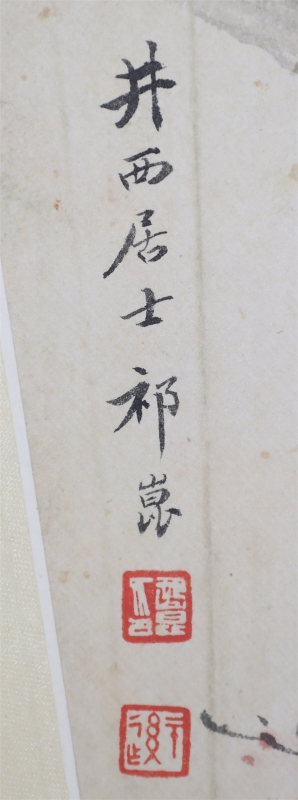 井西居士祁崑